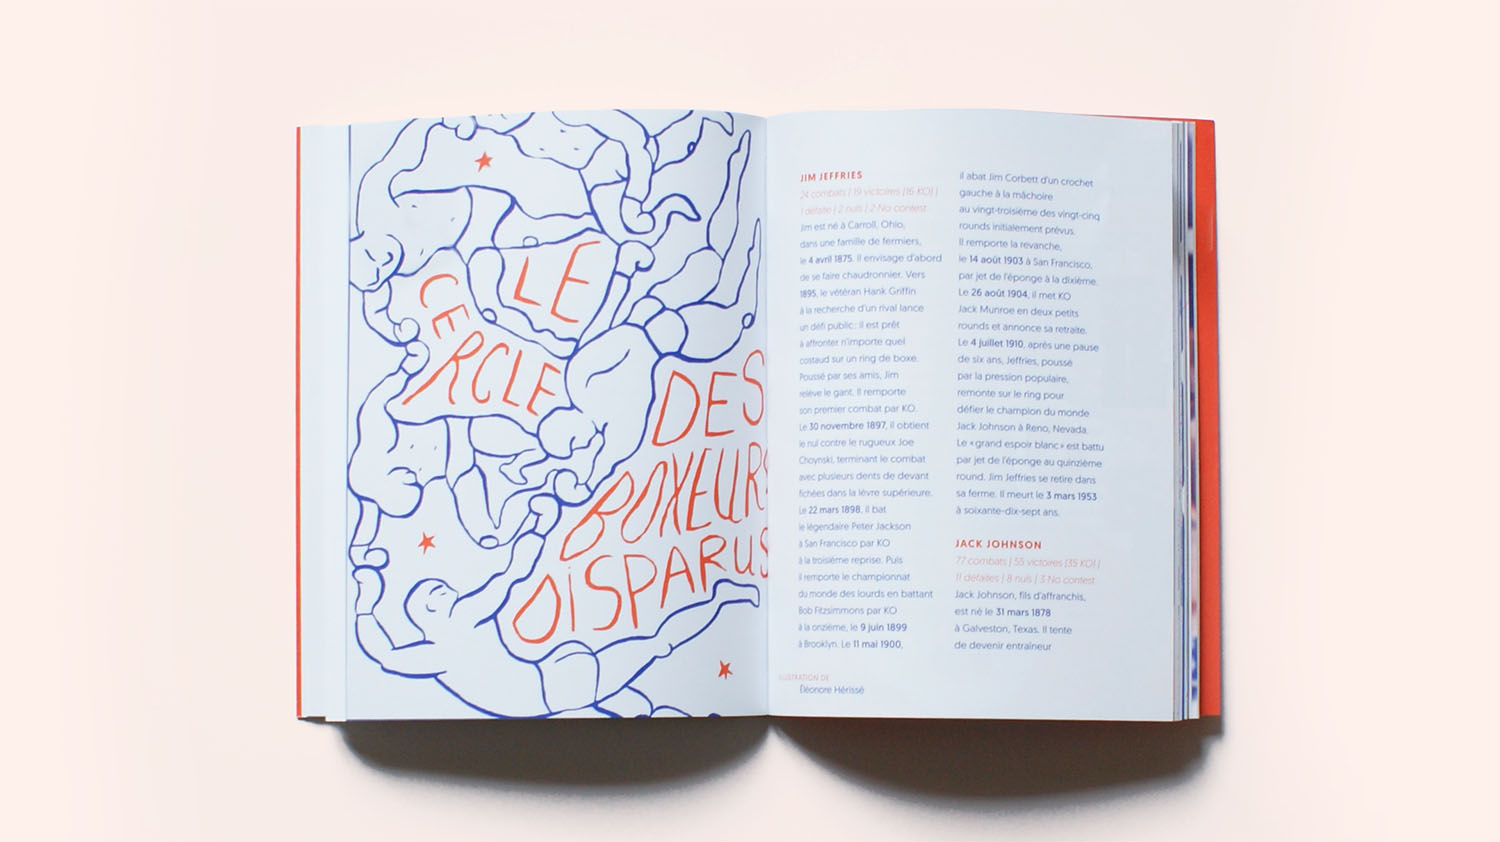 LE
CERCLE
DES
BOXEURS
DISPARUS
JIM JEFFRIES
24 combats | 19 victoires [16 KO] |
1 défaite | 2 nuls | 2 No contest
Jim est né à Carroll, Ohio,
dans une famille de fermiers,
le 4 avril 1875. Il envisage d'abord
de se faire chaudronnier. Vers
1895, le vétéran Hank Griffin
à la recherche d'un rival lance
un défi public : il est prêt
à affronter n'importe quel
costaud sur un ring de boxe.
Poussé par ses amis, Jim
relève le gant. Il remporte
son premier combat par KO.
Le 30 novembre 1897, il obtient
le nul contre le rugueux Joe
Choynski, terminant le combat
avec plusieurs dents de devant
fichées dans la lèvre supérieure.
Le 22 mars 1898, il bat
le légendaire Peter Jackson
à San Francisco par KO
à la troisième reprise. Puis
il remporte le championnat
du monde des lourds en battant
Bob Fitzsimmons par KO
à la onzième, le 9 juin 1899
à Brooklyn. Le 11 mai 1900,
il abat Jim Corbett d'un crochet
gauche à la mâchoire
au vingt-troisième des vingt-cinq
rounds initialement prévus.
Il remporte la revanche,
le 14 août 1903 à San Francisco,
par jet de l'éponge à la dixième.
Le 26 août 1904, il met KO
Jack Munroe en deux petits
rounds et annonce sa retraite.
Le 4 juillet 1910, après une pause
de six ans, Jeffries, poussé
par la pression populaire,
remonte sur le ring pour
défier le champion du monde
Jack Johnson à Reno, Nevada.
Le « grand espoir blanc » est battu
par jet de l'éponge au quinzième
round. Jim Jeffries se retire dans
sa ferme. Il meurt le 3 mars 1953
à soixante-dix-sept ans.
JACK JOHNSON
77 combats | 55 victoires [35 KO] |
11 défaites | 8 nuls | 3 No contest
Jack Johnson, fils d'affranchis,
est né le 31 mars 1878
à Galveston, Texas. Il tente
de devenir entraîneur
ILLUSTRATION DE
Éléonore Hérissé